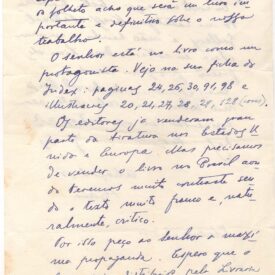 o folheto acho que será um livro im-
portante e definitivo sobre o nosso
trabalho.
O senhor está no livro como um
protagonista. Veja na sua ficha do
Index: paginas 24, 25, 30, 91, 98 e
illustrações 20, 21, 27, 28,
Os editores já venderam gran
parte da tiratura nos Estados U
nido e Europa. Mas precisamos
de vender o livro no Brasil aon
de teremos muito contraste sen
do o texto muito franco e natu-
ralmente, crítico.
Por isto peço ao senhor a maxi
ma propaganda. Espero que o
pelo